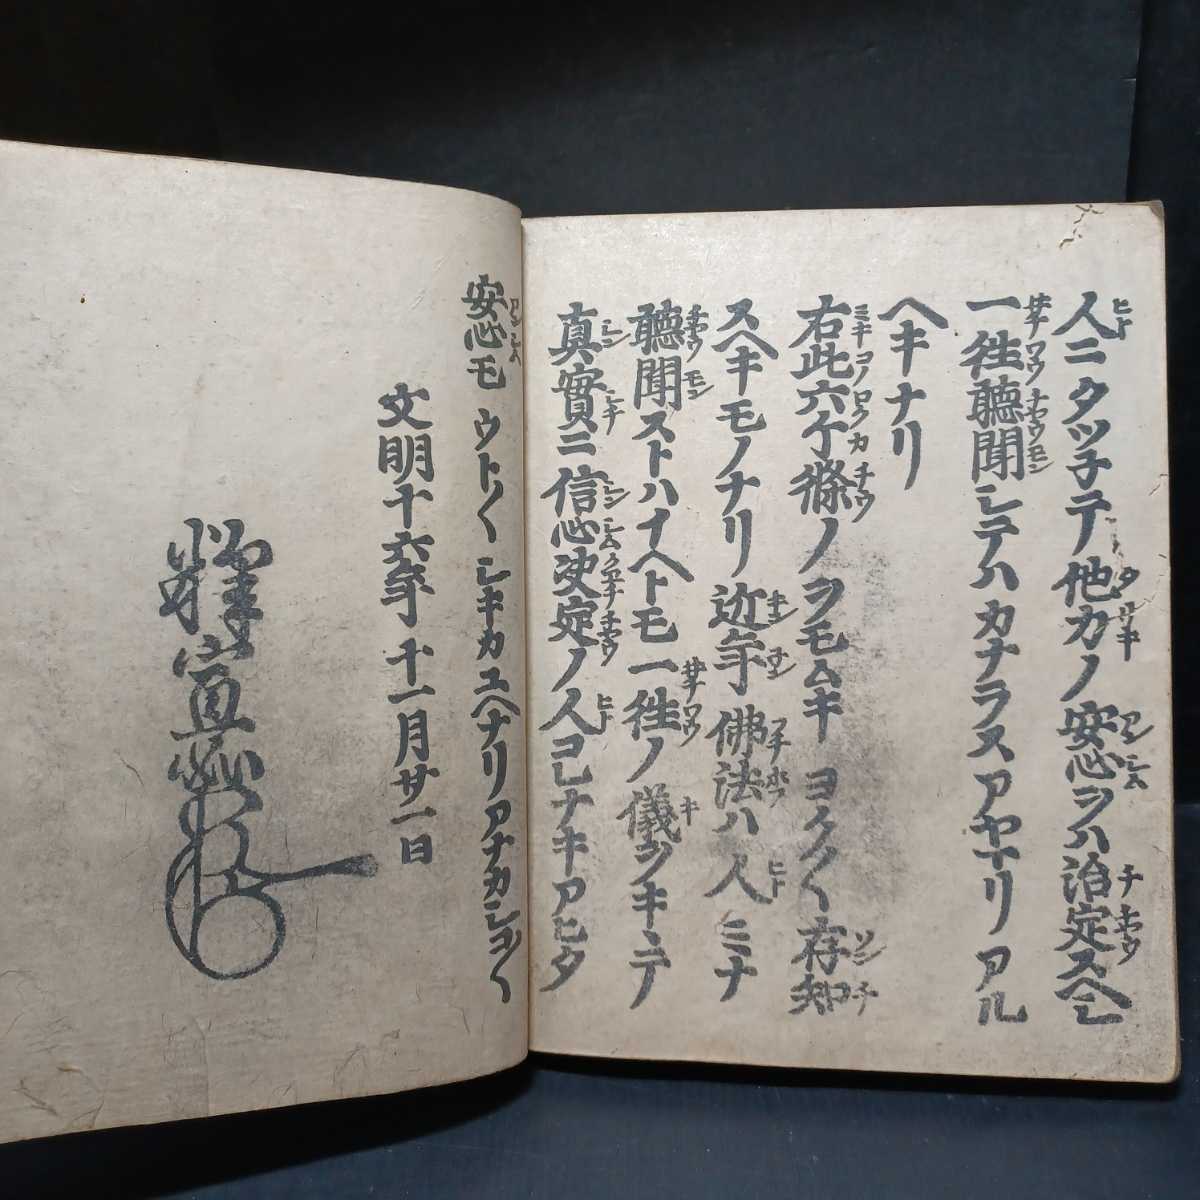 人ニタツ子テ他力ノ安心ヲハ治定スヘシ
一徃聽聞シテハカナラスアヤマリアル
ヘキナリ
右此六ケ條ノヲモムキヨク〱存知
スヘキモノナリ近年佛法ハ人ミナ
聽聞ストハイヘトモ一徃ノ儀ヲキヽテ
真實ニ信心决定ノ人コレナキアヒタ
安心モウト〱シキカユヘナリアナカシコ〱
文明十六年十一月廿一日
釋